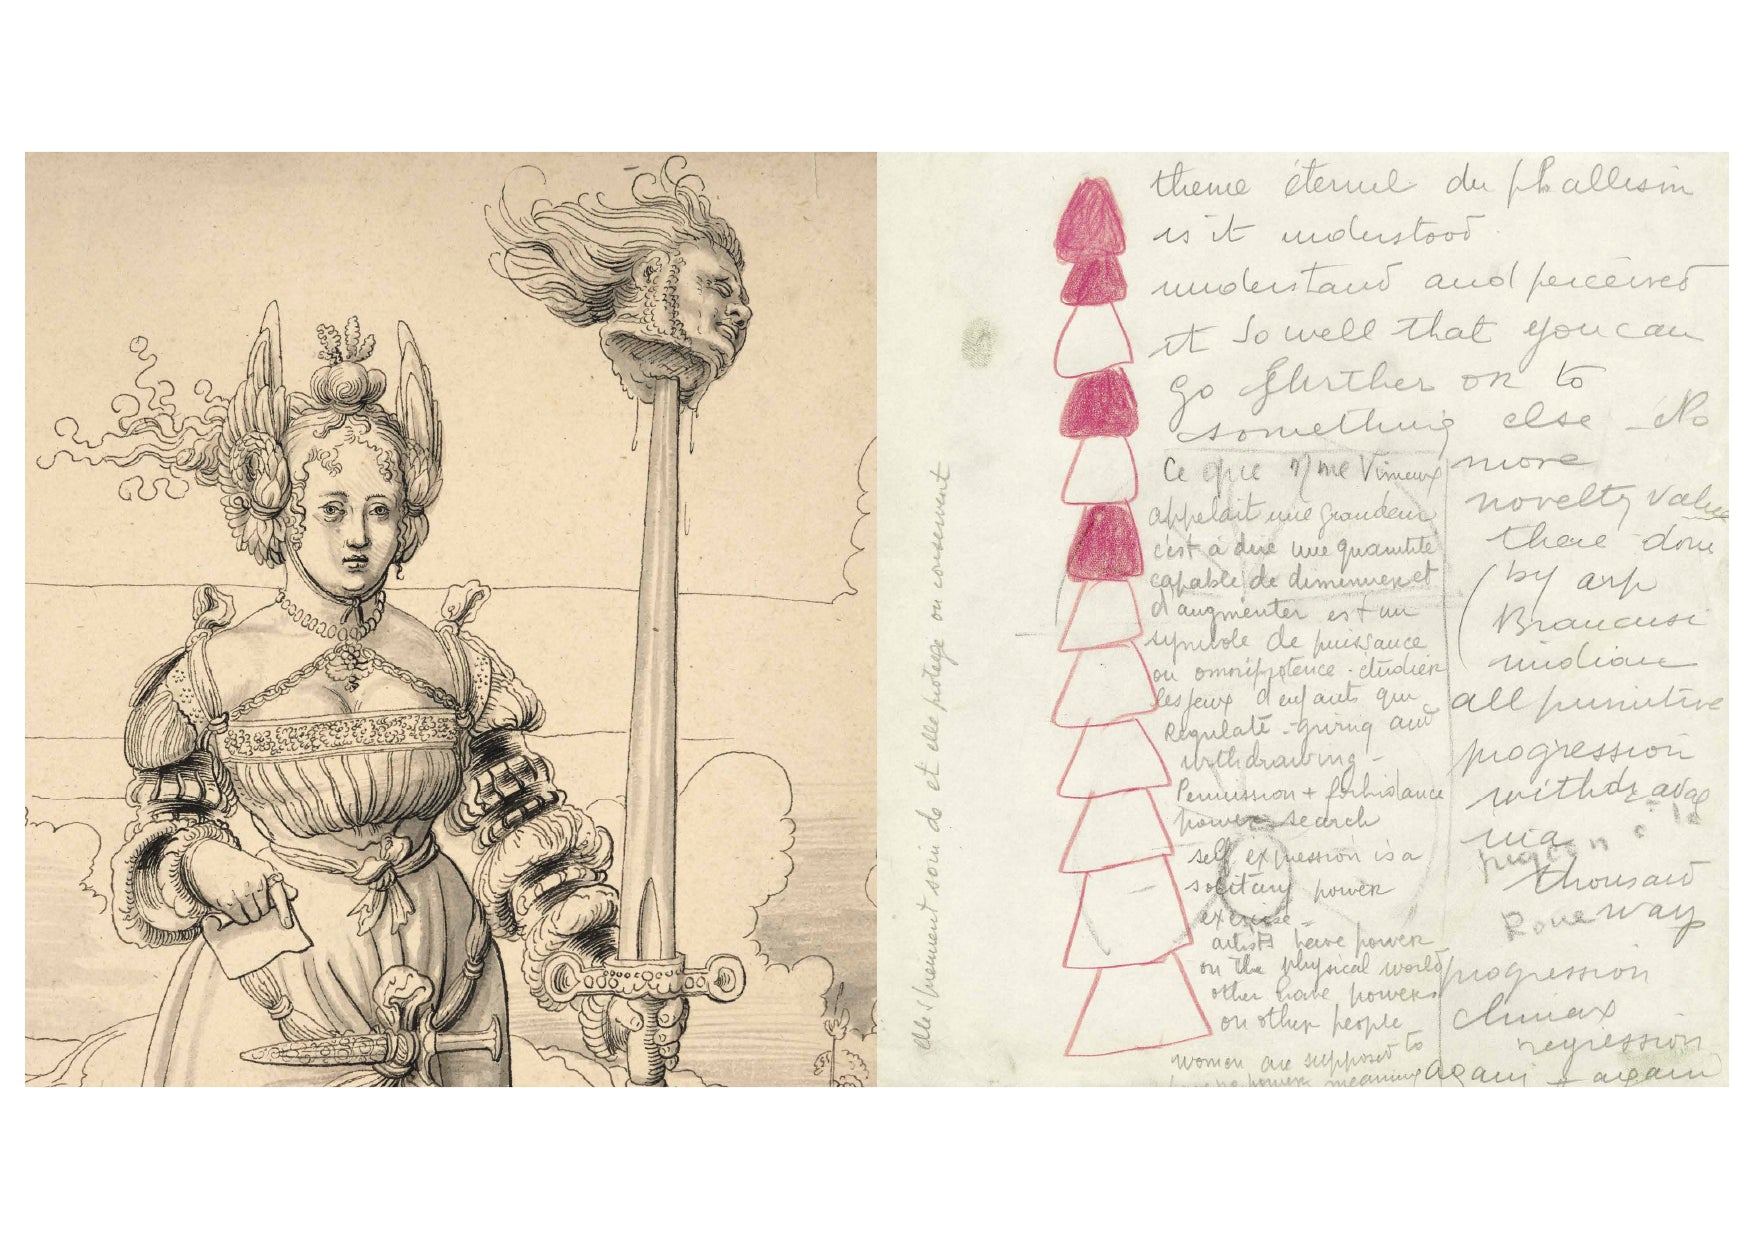 theme éternel du phallism
is it understood
understand and perceived
it so well that you can
go further on to
something else No
more
novelty value
there done
(by arp
Brancusi
indian
all primitive
progression
withdrawal
via
thousand
way
progression
climax
regression
again + again
Ce que Mme Vimeux
appelait une grandeur
c'est à dire une quantité
capable de diminuer et
d'augmenter est un
symbole de puissance
ou omnipotence - étudier
les jeux d'enfants qui
Regulate - giving and
withdrawing -
Permission + forbidance
power search
self expression is a
solitary power
exercise -
artists have power
on the physical world
other have power
on other people
women are supposed to
have power meaning
elles prennent soin de et elle protège ou conservent